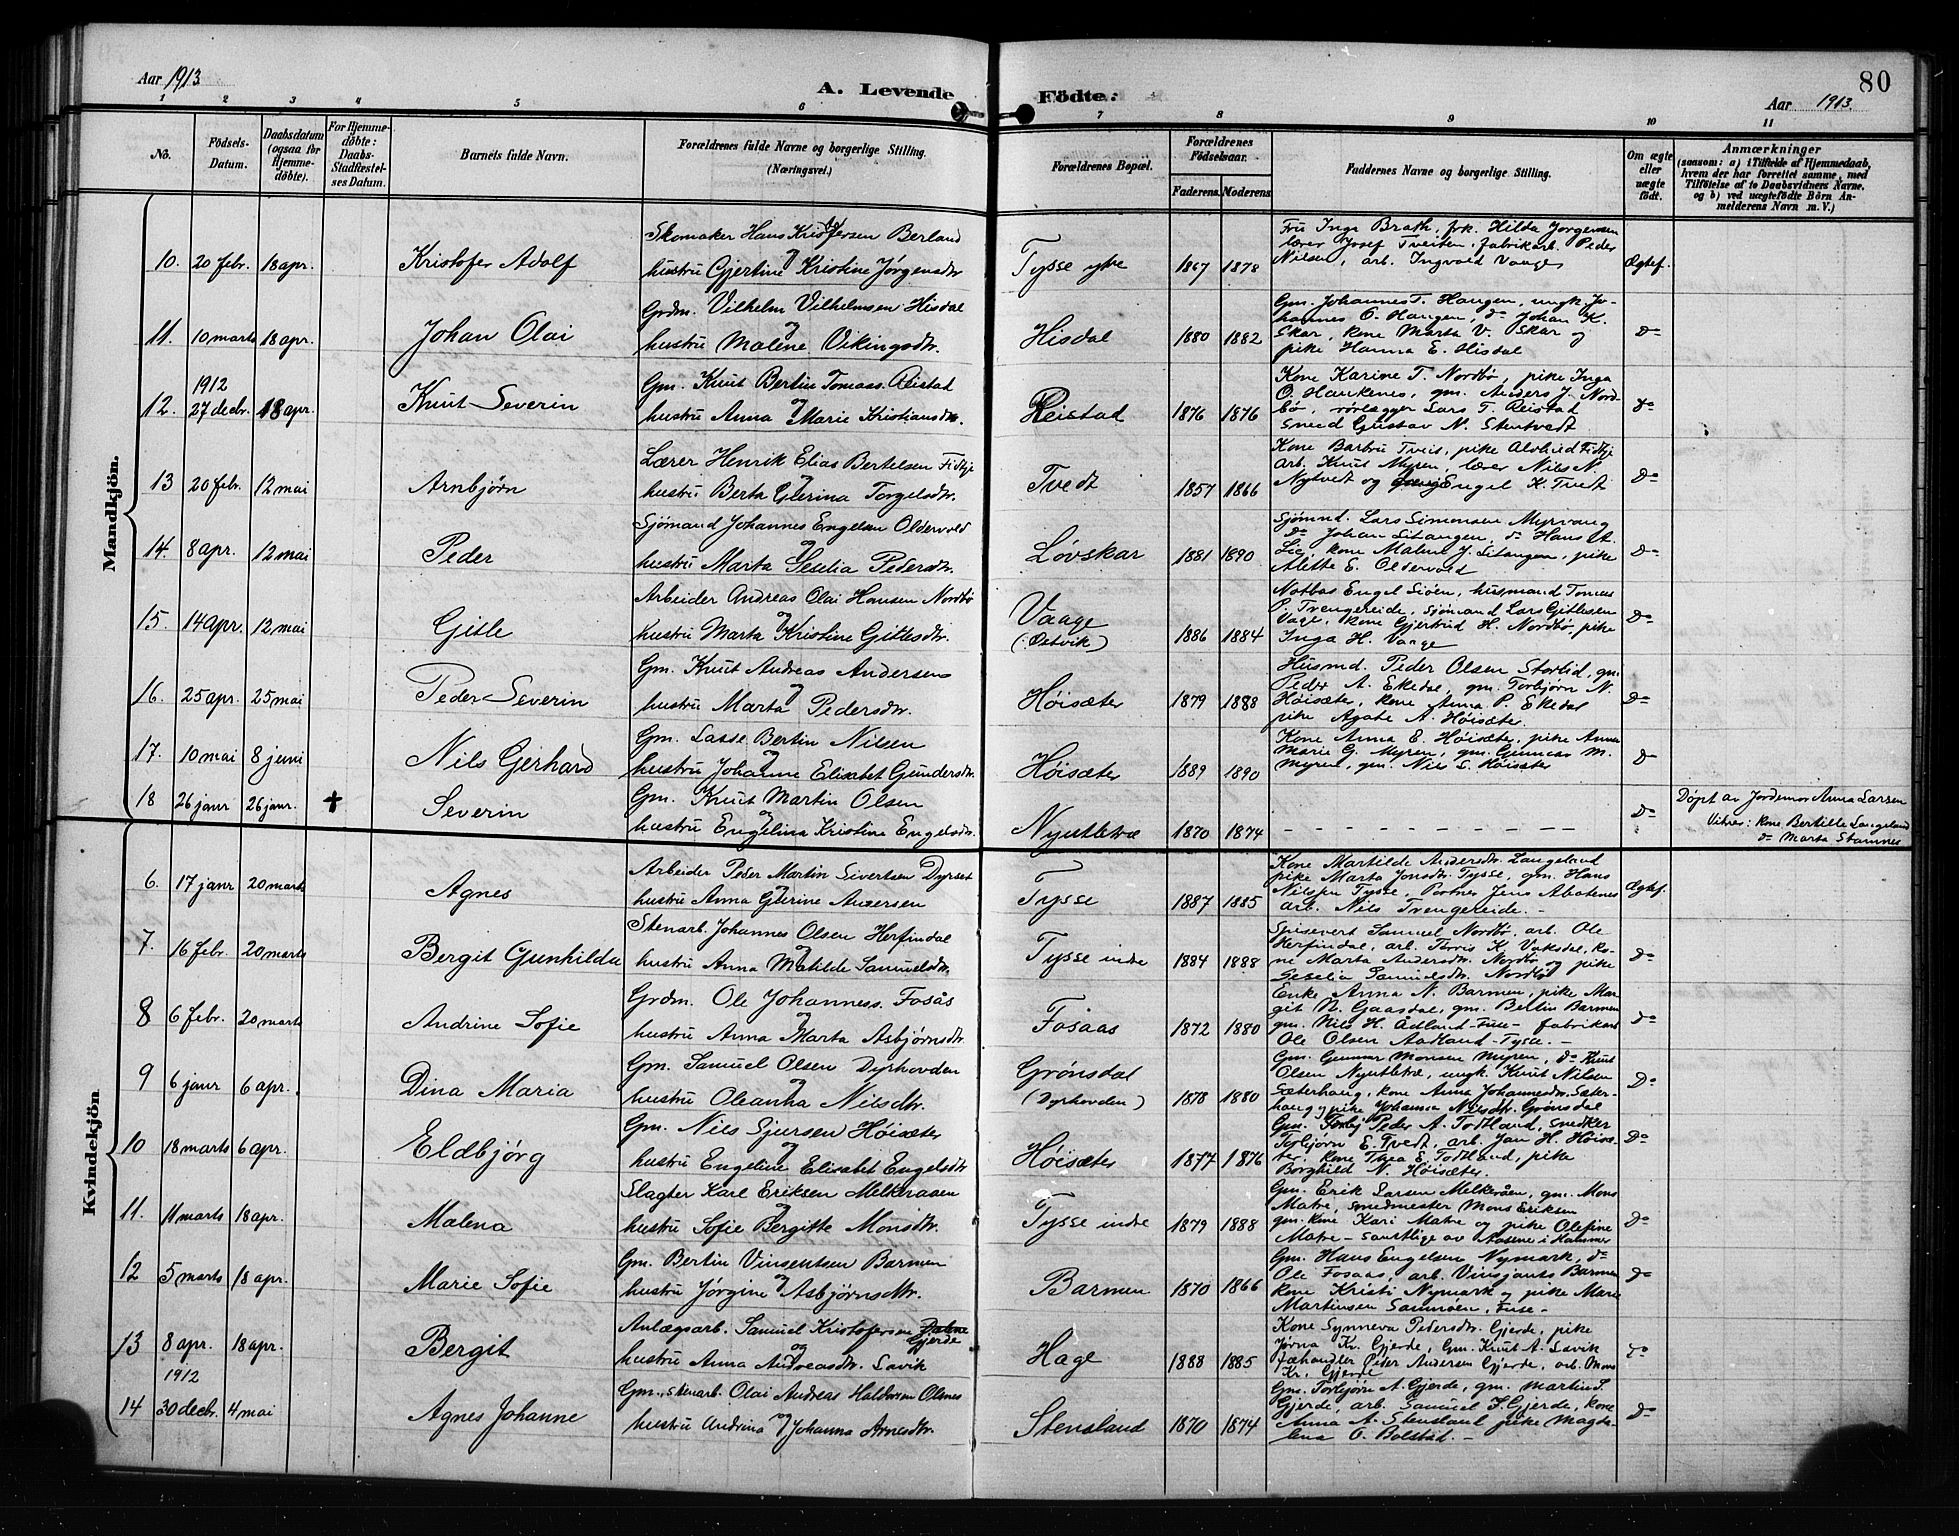 Aar 1913
A. Levende Födte:
80
Aar 1913.
1 2 3 4 5 6 7 8 9 10 11
No.
Födsels-Datum.
Daabsdatum (ogsaa for Hjemmedöbte).
For Hjemmedöbte: Daabs-Stadfæstelses Datum.
Barnets fulde Navn.
Forældrenes fulde Navne og borgerlige Stilling. (Næringsvei.)
Forældrenes Bopæl.
Forældrenes Födselsaar.
Faderens. Moderens.
Faddernes Navne og borgerlige Stilling.
Om ægte eller uægte födt.
Anmærkninger (saasom: a) i Tilfælde af Hjemmedaab, hvem der har forrettet samme, med Tilföielse af to Daabsvidners Navne, og b) ved uægtefödte Börn Anmelderens Navn m. V.)
Mandkjön.
10. 20 febr. 18 apr. Kristofer Adolf
Skomaker Hans Kristofersen Berland
og
hustru Gjertine Kristine Jørgensdtr
Tysse ytre 1867 1878
Fru Inga Brath, frk. Hilda Jørgensen
lærer Josef Tveiten, fabrikarb. Peder
Nilsen, arb. Ingvald Vaage
Ægtef.
11. 10 marts 18 apr. Johan Olai
Grdm. Vilhelm Vilhelmsen Hisdal
og
hustru Malene Vikingsdtr.
Hisdal 1880 1882
Gm. Johannes T. Haugen, ungk. Jo-
hannes O. Haugen, do Johan K.
Skar, kone Marta V. Skar og
pike Hanna E. Hisdal
do
12. 1912 27 decbr. 18 apr. Knut Severin
Gm. Knut Bertin Tomass. Reistad
og
hustru Anna Marie Kristiansdtr.
Reistad 1876 1876
Kone Karine T. Nordbø, pike Inga
O. Haukenes, gm. Anders J. Nord-
bø, rørlægger Lars T. Reistad
smed Gustav N. Stentvedt
do
13 20 febr. 12 mai Arnbjørn
Lærer Henrik Elias Bertelsen Fidtje
og
hustru Berta Gurina Torgelsdtr.
Tvedt 1857 1866
Kone Barbru Tveit, pike Alvhild Fidtje
arb. Knut Myren, lærer Nils N.
Nytvedt og Engel K. Tvedt
do
14. 8 apr. 12 mai Peder
Sjømand Johannes Engelsen Oldervold
og
hustru Marta Seselia Pedersdtr.
Løvskar 1881 1890
Sjømnd. Lars Simonsen Myrvang
do Johan Litangen, do Hans A.
Lie, kone Malene J. Litangen, pike
Alette E. Oldervold
do
15. 14 apr. 12 mai Gitle
Arbeider Andreas Olai Hansen Nordbø
og
hustru Marta Kristine Gitlesdtr.
Vaage (Østvik) 1886 1884
Notbas Engel Sioen, husmand Tomas
P. Trengereide, sjømand Lars Gitlesen
Vage, kone Gjertrud H. Nordbø, pike
Inga H. Vaage
do
16. 25 apr. 25 mai Peder Severin
Gm. Knut Andreas Andersen
og
hustru Marta Pedersdtr.
Høisæter 1879 1888
Husmd. Peder Olsen Storlid, gm.
Peder A. Ekedal, gm. Torbjørn N.
Høisæter, kone Anna P. Ekedal
pike Agate A. Høisæter.
do
17. 10 mai 8 juni Nils Gerhard
Gm. Lasse Bertin Nilsen
og
hustru Johanne Elisabet Gundersdtr.
Høisæter 1889 1890
Kone Anna E. Høisæter, pike Anna
Marie G. Myren, gm. Gunnar M.
Myren, gm. Nils L. Høisæter
do
18 26 janr 26 janr. + Severin
Gm. Knut Martin Olsen
og
hustru Engelina Kristine Engelsdtr.
Nyutletræ 1870 1874
do
Døpt av jordemor Anna Larsen
Vitner: kone Bertille Langeland
do Marta Stamnes
Kvindekjön
6. 17 janr 20 marts Agnes
Arbeider Peder Martin Sivertsen Dyrset
og
hustru Anna Gurine Andersen
Tysse 1887 1885
Kone Martilde Andersdtr. Langeland
pike Marta Jonsdtr. Tysse, gm. Hans
Nilssen Tysse, Portner Jens Abotenes
arb. Nils Trengereide. -
Ægtef.
7. 16 febr. 20 marts Bergit Gunhilda
Stenarb. Johannes Olsen Herfindal
og
hustru Anna Matilde Samuelsdtr.
Tysse indre 1884 1888
Spisevert Samuel Nordbø, arb. Ole
Herfindal, arb. K. Vaksdal, Ko-
ne Marta Andersdtr. Nordbø og pike
Seselia Samuelsdtr. Nordbø
do
8 6 febr. 20 marts Andrine Sofie
Grdm. Ole Johanness. Fosås
og
hustru Anna Marta Asbjørnsdtr.
Fosaas 1872 1880
Enke Anna N. Barmen, pike Mar-
git N. Gaasdal, gm. Bertin Barmen
gm. Nils H. Ådland-Fuse- fabrikarb
Ole Olsen Aadland-Tysse. -
do
9 6 janr 6 apr. Dina Maria
Gm. Samuel Olsen Dyrhovden
og
hustru Oleanna Nilsdtr.
Grønsdal (Dyrhovden) 1878 1880
Gm. Gunnar Monsen Myren, do Knut
Olsen Nyutletræ, ungk. Knut Nilsen
Sæterhaug, kone Anna Johannesdtr. Sæter-
haug og pike Johanna Nilsdtr. Grønsdal
do
10 18 marts 6 apr. Eldbjørg
Gm. Nils Sjursen Høisæter
og
hustru Engeline Elisabet Engelsdtr
Høisæter 1877 1876
Gm. Peder A. Todtland, snedker
Torbjørn E. Tvedt, arb. Jan H. Høisæ-
ter, kone Thea E. Todtland, pike
Borghild N. Høisæter.
do
11. 11 marts 18 apr. Malena
Slagter Karl Eriksen Melkeraaen
og
hustru Sofie Bergitte Monsdtr.
Tysse indre 1879 1888
Gm. Erik Larsen Melkeråen, gm. Mons
Matre, smedmester Mons Eriksen
gm. kone Kari Matre og pike Olefine
Matre - samtlige av Aasene i Hammer
do
12 5 marts 18 apr. Marie Sofie
Gm. Bertin Vinsentsen Barmen
og
hustru Jørgine Asbjørnsdtr.
Barmen 1870 1866
Gm. Hans Engelsen Nymark, do
Ole Fosaas, arb. Vinsjants Barmen
kone Kristi Nymark og pike Marie
Martinsen Samnøen, Fuse-
do
13 8 apr. 18 apr. Bergit
Anlægsarb. Samuel Kristofersen Dalene Gjerde
og
hustru Anna Andreasdtr. Lavik
Hage 1888 1885
Kone Synneva Pedersdtr. Gjerde, pike
Jørna Kr. Gjerde, Gm. Knut A. Lavik
fæhandler Peter Andersen Gjerde, arb. Mons
Kr. Gjerde
do
14 1912 30 decbr. 4 mai Agnes Johanne
Gm., stenarb. Olai Andreas Haldorsen Olsnes
og
hustru Andrina Johanna Arnesdtr.
Stensland 1870 1874
Gm. Torbjørn A. Gjerde, gm. Martin S.
Gjerde, arb. Samuel K. Gjerde, kone
Anna A. Stensland, pike Magda-
lena O. Bolstad. -
do